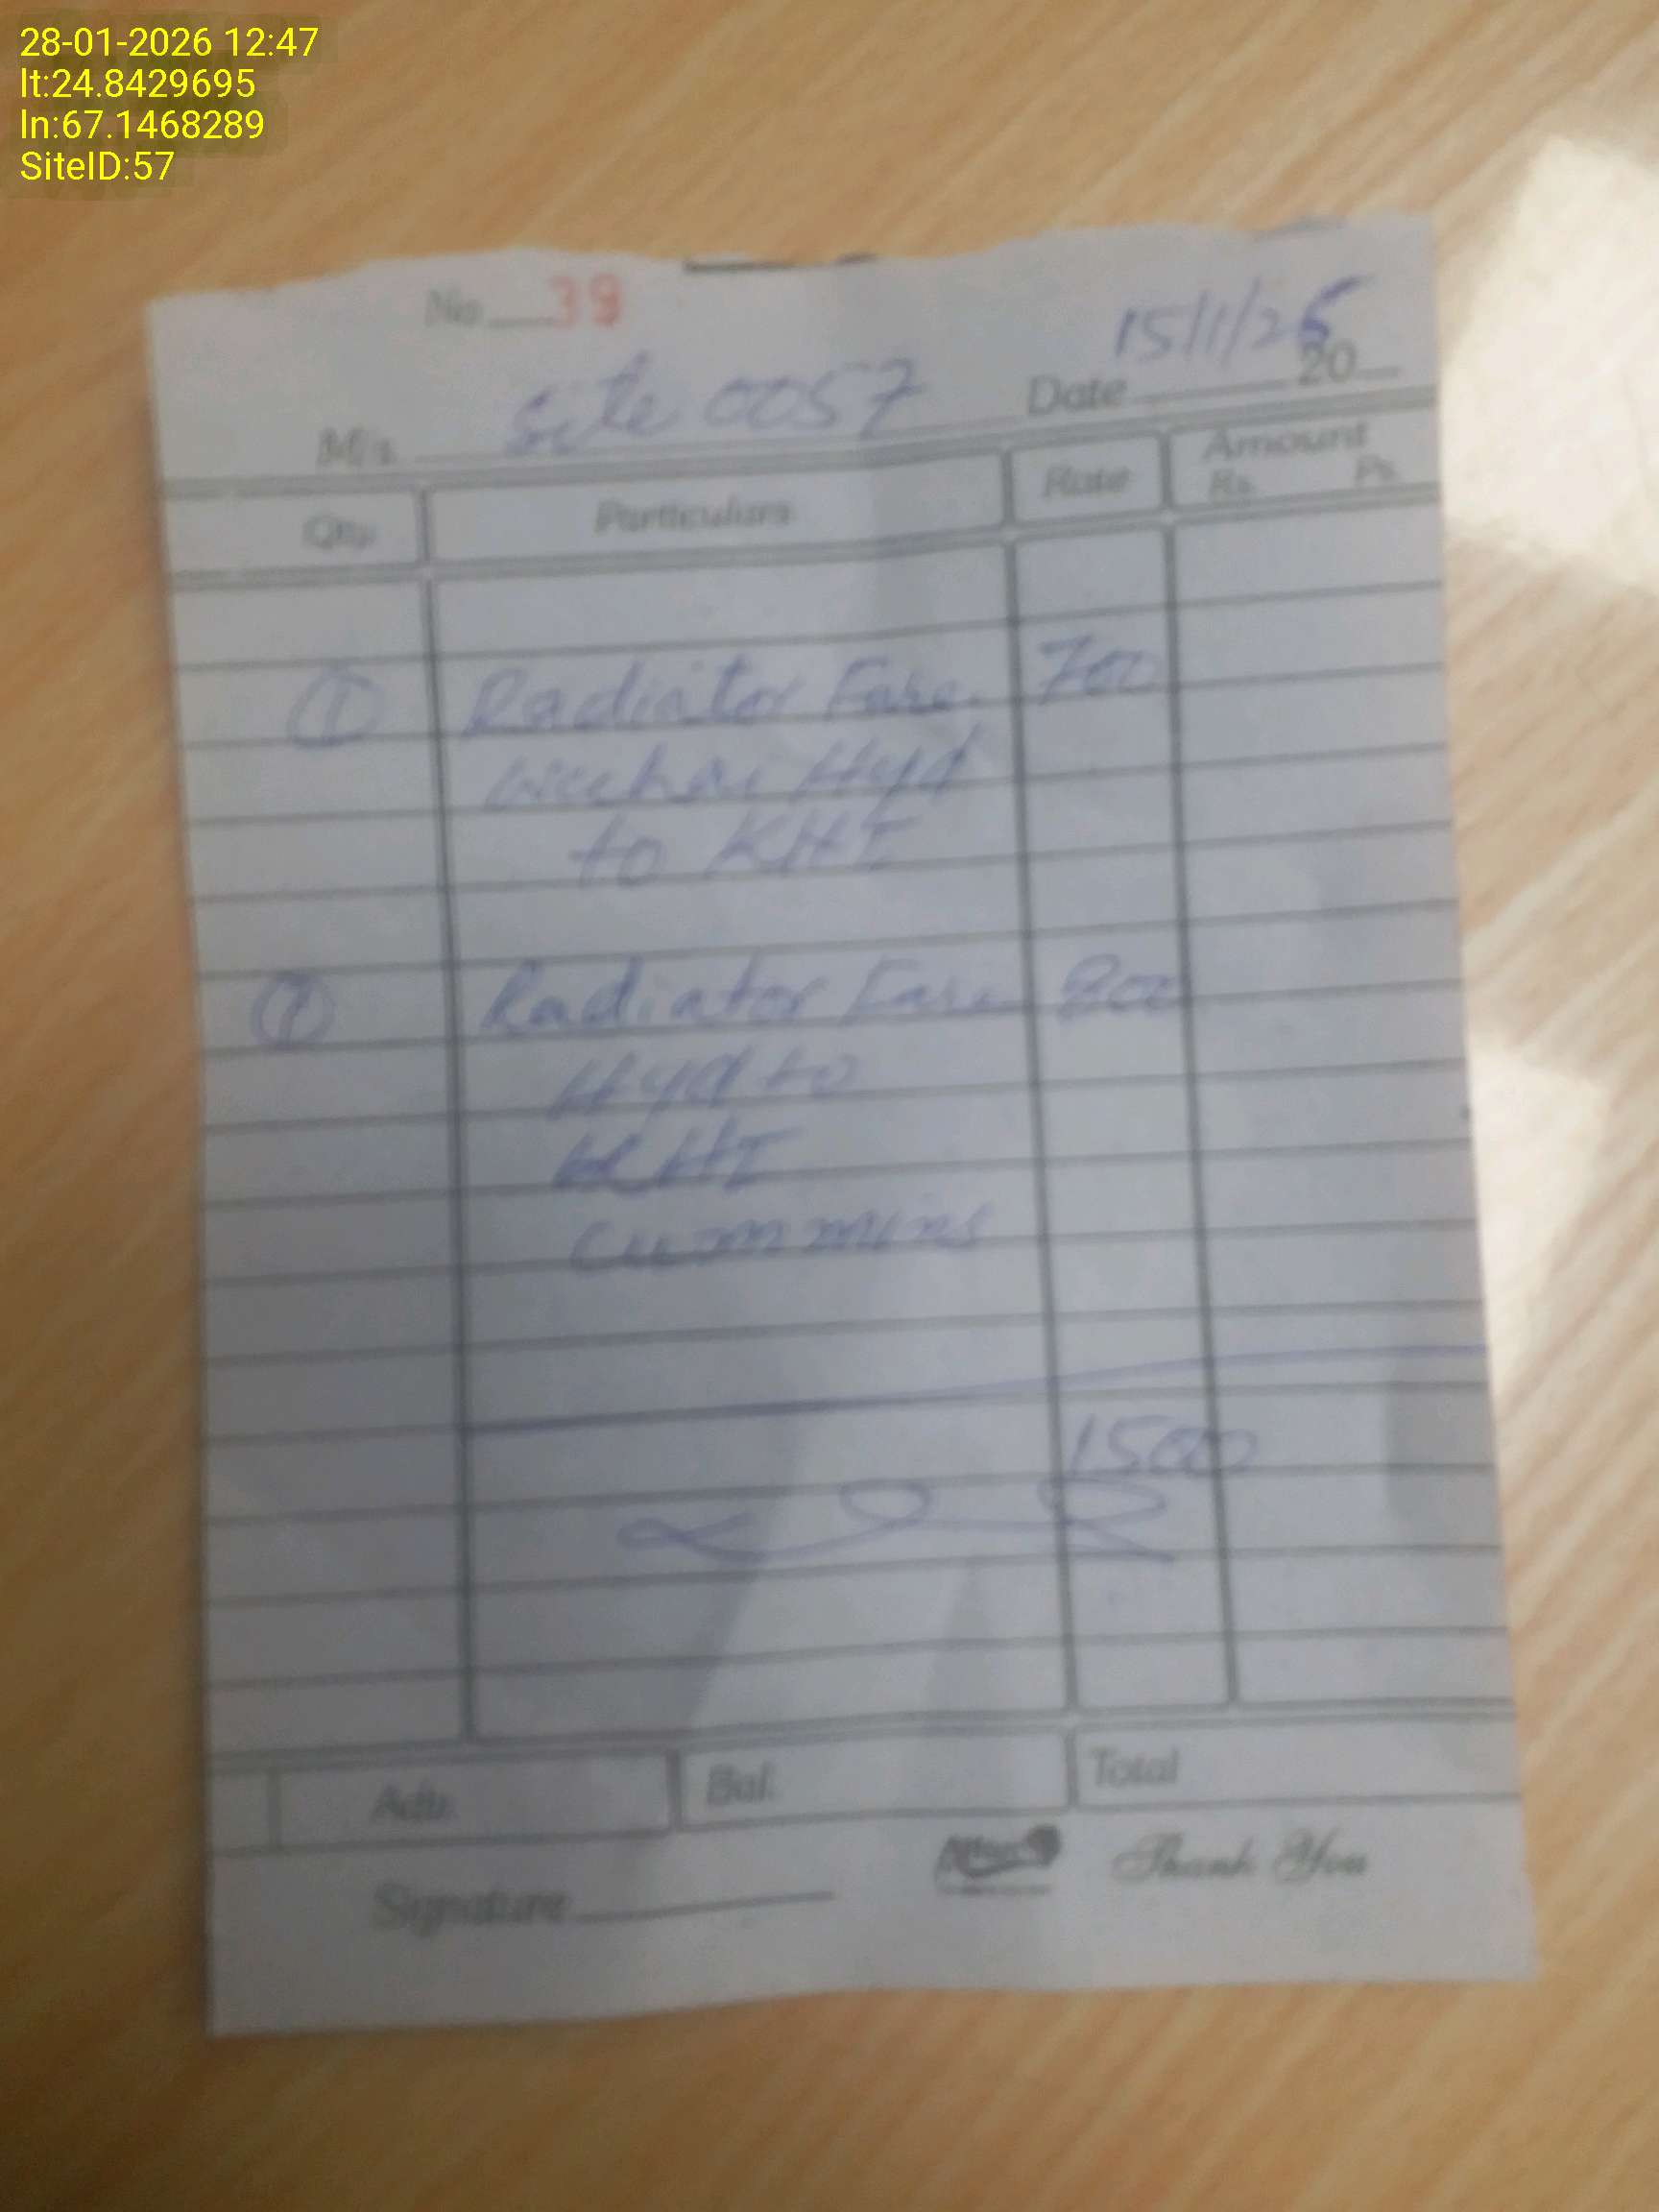 28-01-2026 12:47
lt:24.8429695
ln:67.1468289
SiteID:57
No. 39
15/1/26
M/s. Site 0057 Date 20
Qty. Particulars Rate Amount
Rs. Ps.
1 Radiator Fare 700
Hyd
to KHI
1 Radiator Fare 800
Hyd to
KHI
Cummins
1500
Adv. Bal. Total
Signature Thank You